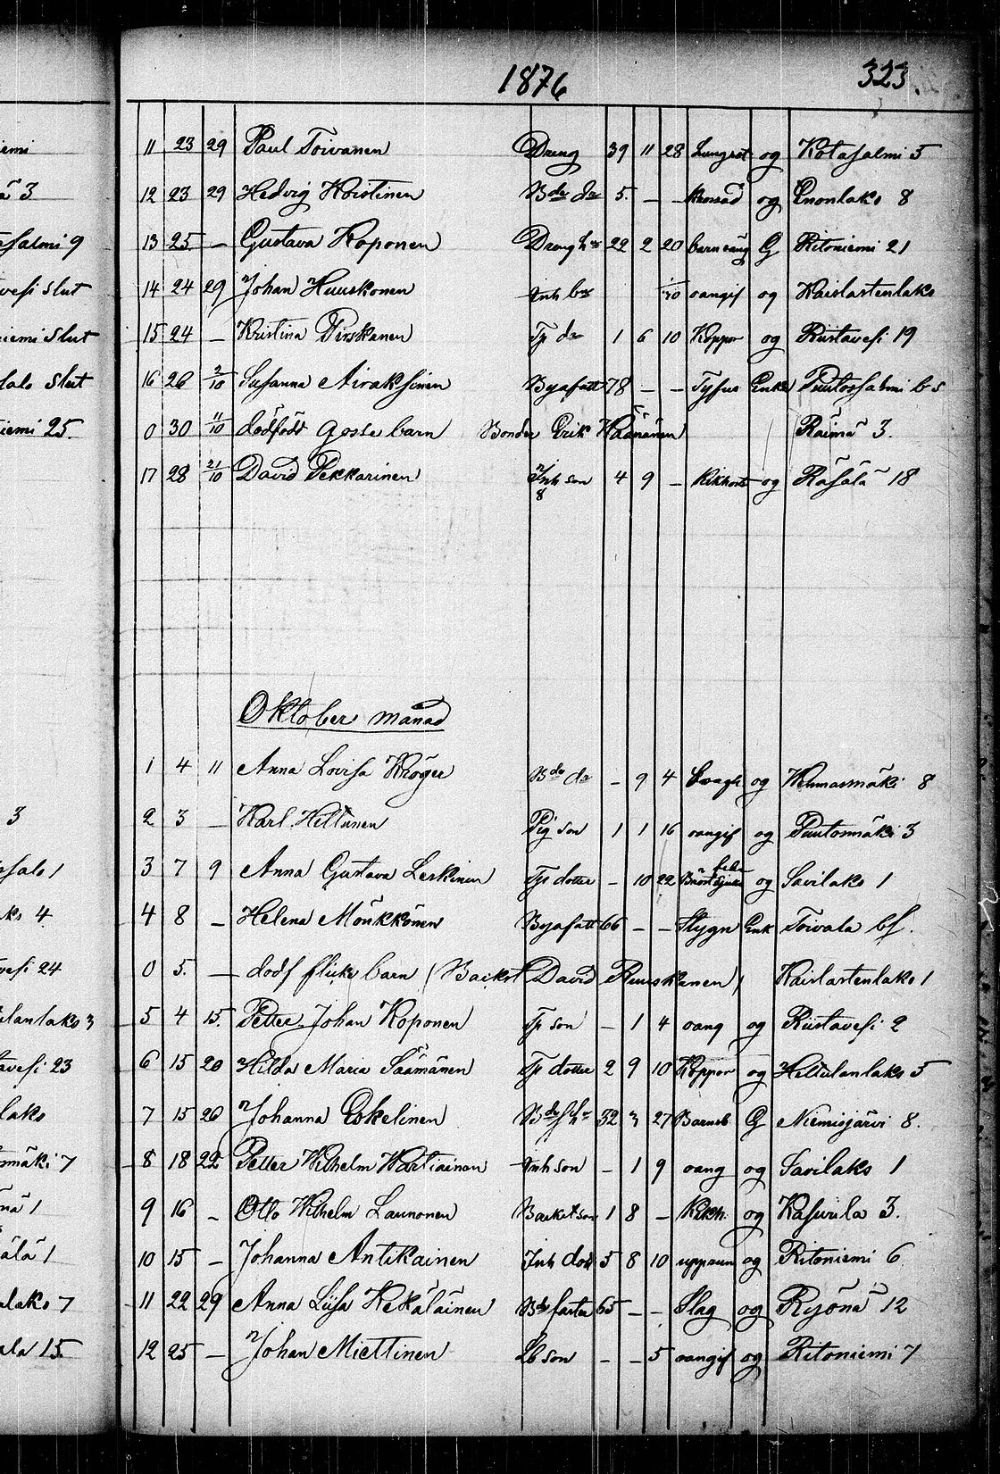 1876
323.
11 23 29 Paul Toivanen Dreng 39 11 28 Lungsot og Kotasalmi 5
12 23 29 Hedvig Hoistinen Bde dr 5. — — og Enonlaks 8
13 25 — Gustava Koponen 22 2 20 barnsäng G Ritoniemi 21
14 24 29 Johan Huuskonen Inh br 1/30 oangif og Kaislastenlaks
15 24 — Kristina Pirskanen Tp dr 1 6 10 Koppor og Riistavesi 19
16 26 2/10 Susanna Airaksinen Bysfatt 78 — — Tyfus Enka Puutossalmi bs
0 30 11/10 dödfödt gosse barn Bonden Erik Räimä 3.
17 28 21/10 David Pekkarinen Inh son 4 9 — Kikhost og Räsälä 18
8
Oktober månad
1 4 11 Anna Lovisa Kröger Bde dr — 9 4 og Kumasmäki 8
2 3 — Karl Hiltunen Pig son 1 1 16 oangif og Puutosmäki 3
3 7 9 Anna Gustava Leskinen Tp dotter — 10 22 og Savilaks 1
4 8 — Helena Mönkkönen Bysfatt 66 — — Stygn Enk Toivala bf.
0 5. — dödf flicke barn (Backst David Ruuskanen) Kaislastenlaks 1
5 4 15. Petter Johan Koponen Tp son — 1 4 oang og Riistavesi 2
6 15 20 Hilda Maria Säämänen Tp dotter 2 9 10 Koppor og Hiltulanlaks 5
7 15 26 Johanna Eskelinen 32 3 27 Barnsb G Niemisjärvi 8.
8 18 22 Petter Wilhelm Wartiainen Inh son — 1 9 oang og Savilaks 1
9 16 — Otto Wilhelm Launonen Backst son 1 8 — Kikh. og Kasurila 3.
10 15 — Johanna Antikainen Inh dott 5 8 10 og Ritoniemi 6
11 22 29 Anna Liisa Hekäläinen Bde faster 65 — — Slag og Ryönä 12
12 25 — Johan Miettinen Lb son — — 5 oangif og Ritoniemi 7